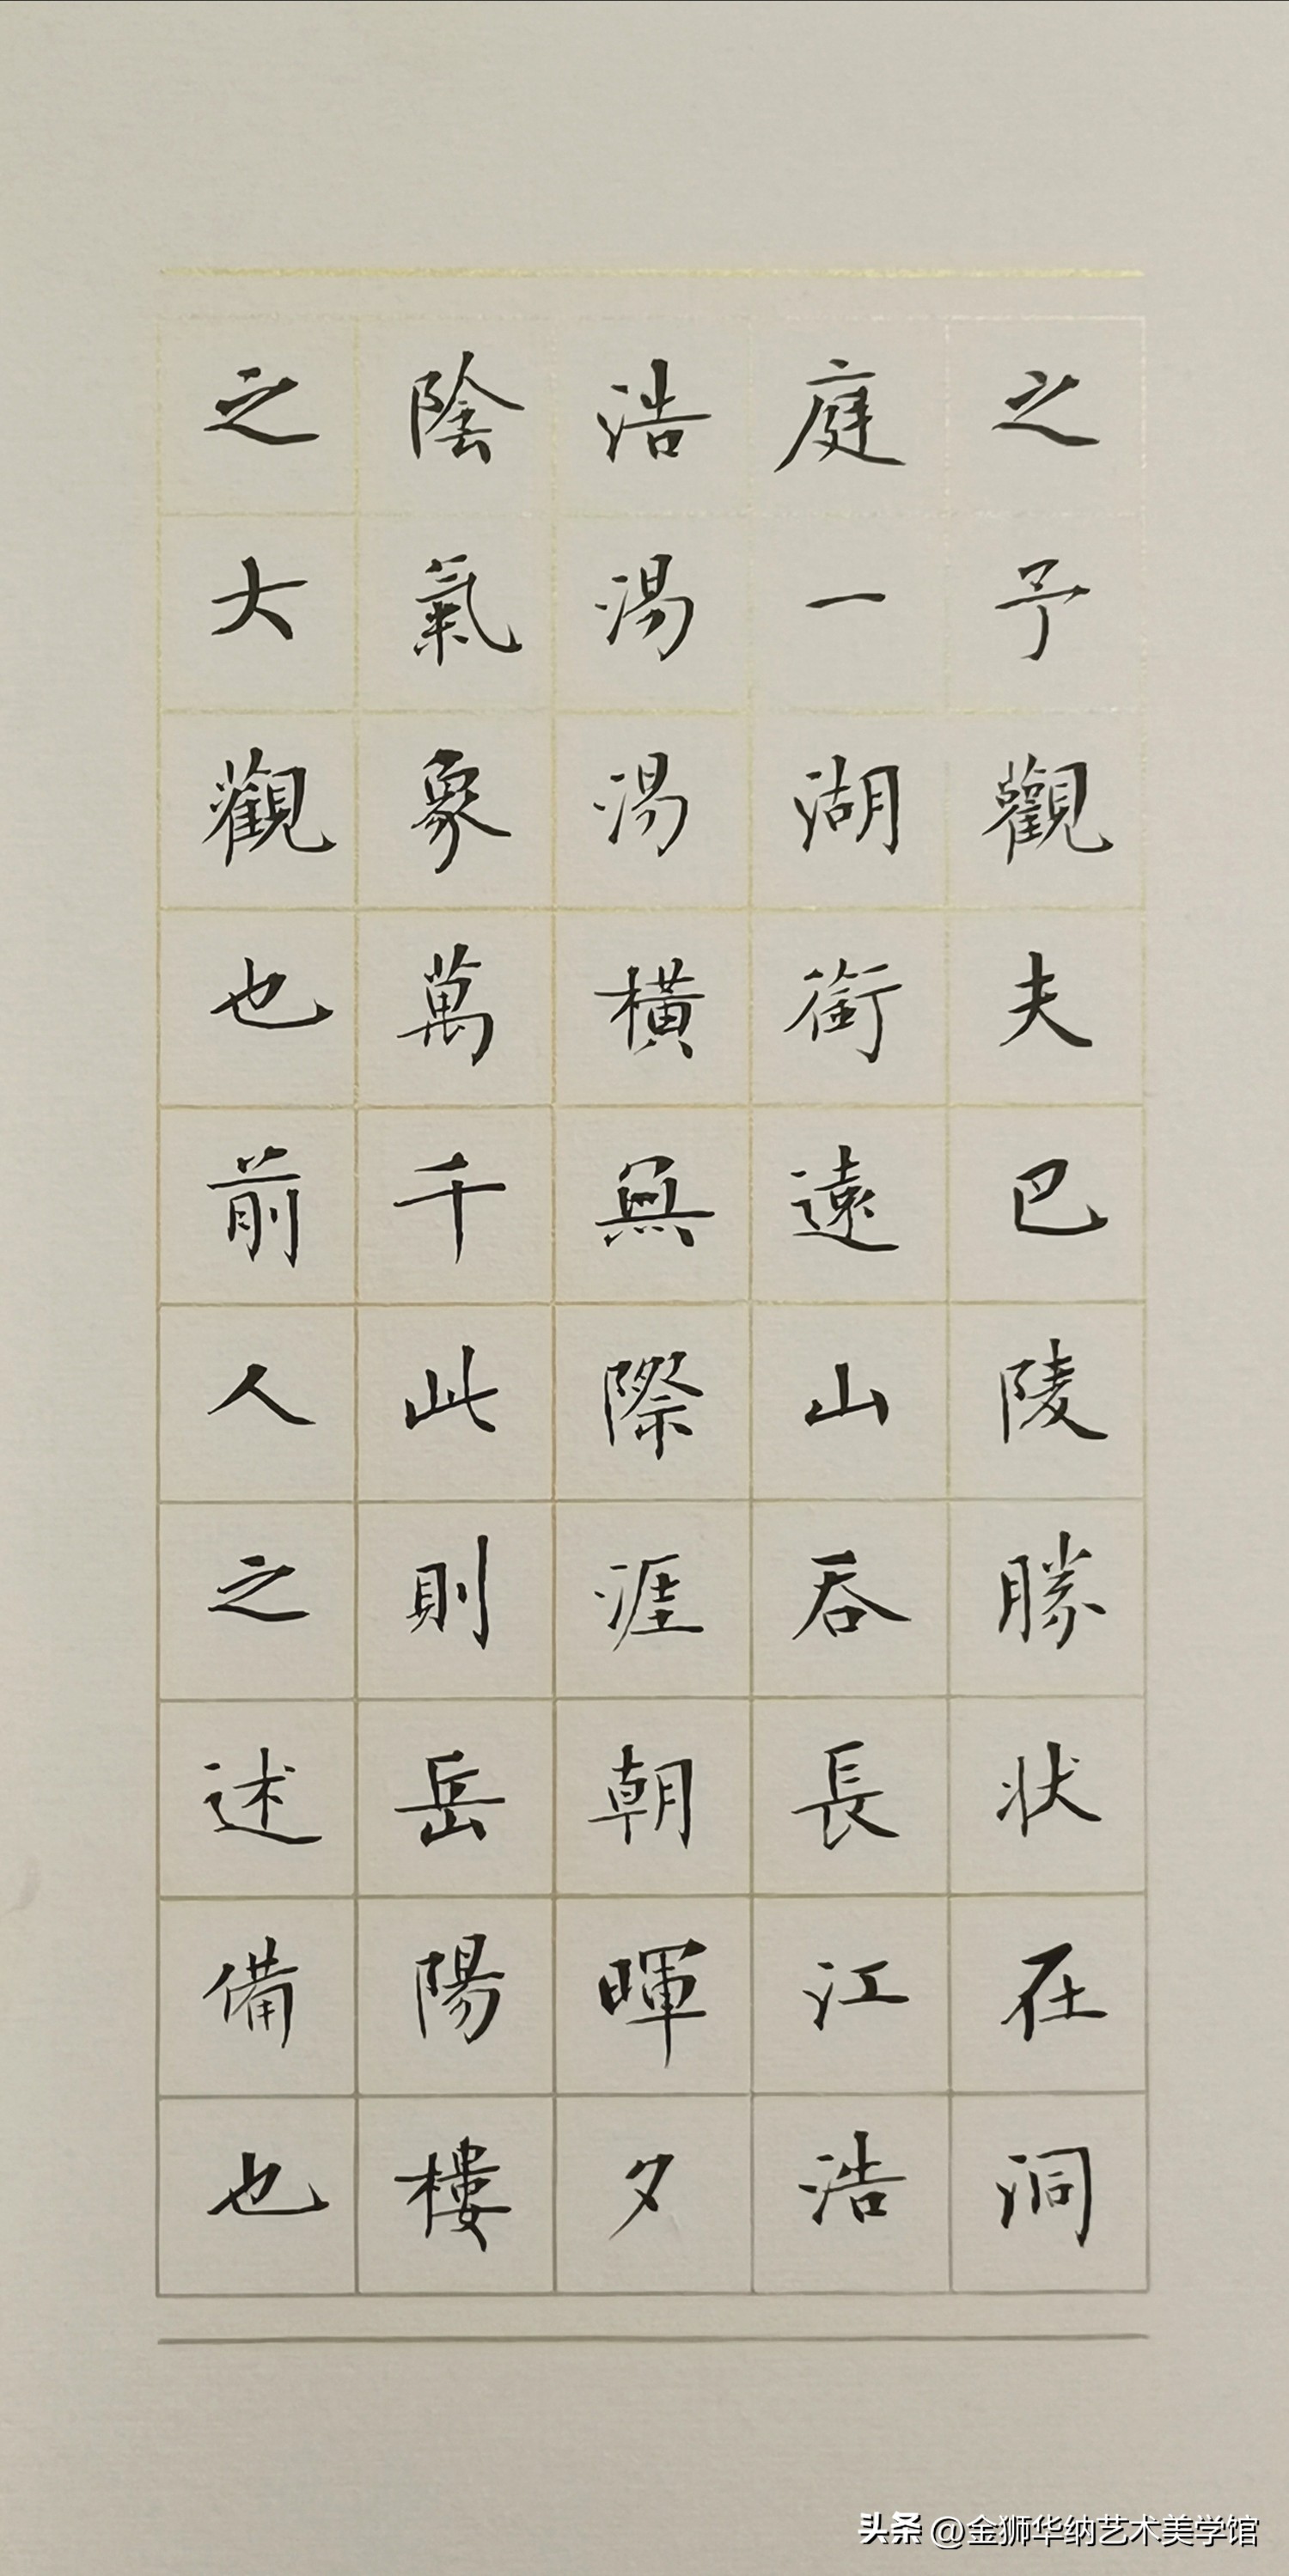 之予觀夫巴陵勝状在洞
庭一湖銜遠山吞長江浩
浩湯湯橫無際涯朝暉夕
陰氣象萬千此則岳陽樓
之大觀也前人之述備也
头条 @金狮华纳艺术美学馆